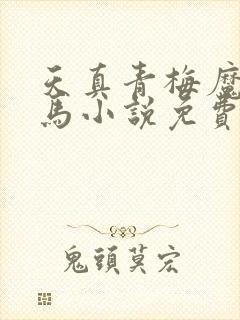 天真青梅魔
馬小說免費
鬼頭莫宏